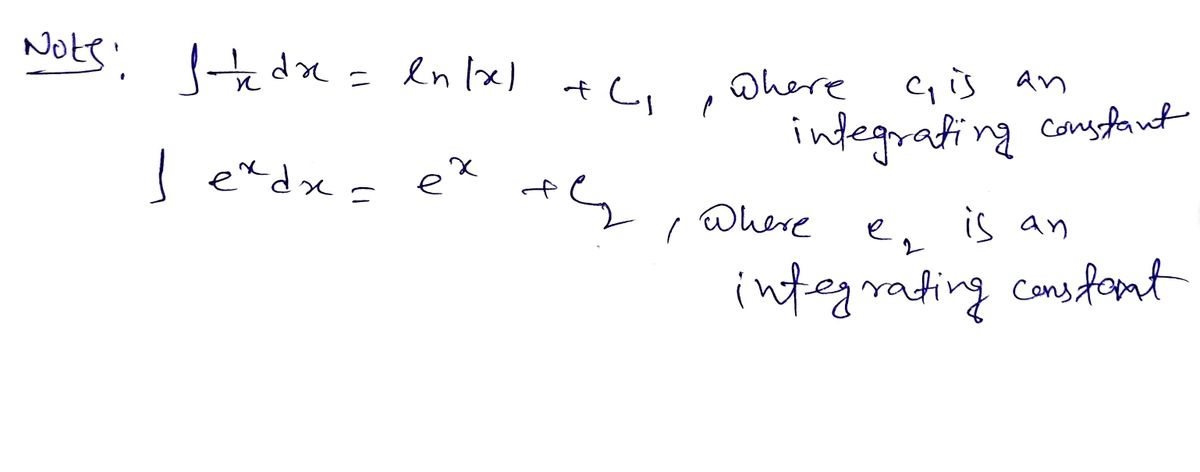 Note: ∫ 1/x dx = ln |x| + C₁ , where C₁ is an
integrating constant
∫ eˣ dx = eˣ + C₂ , where e₂ is an
integrating constant